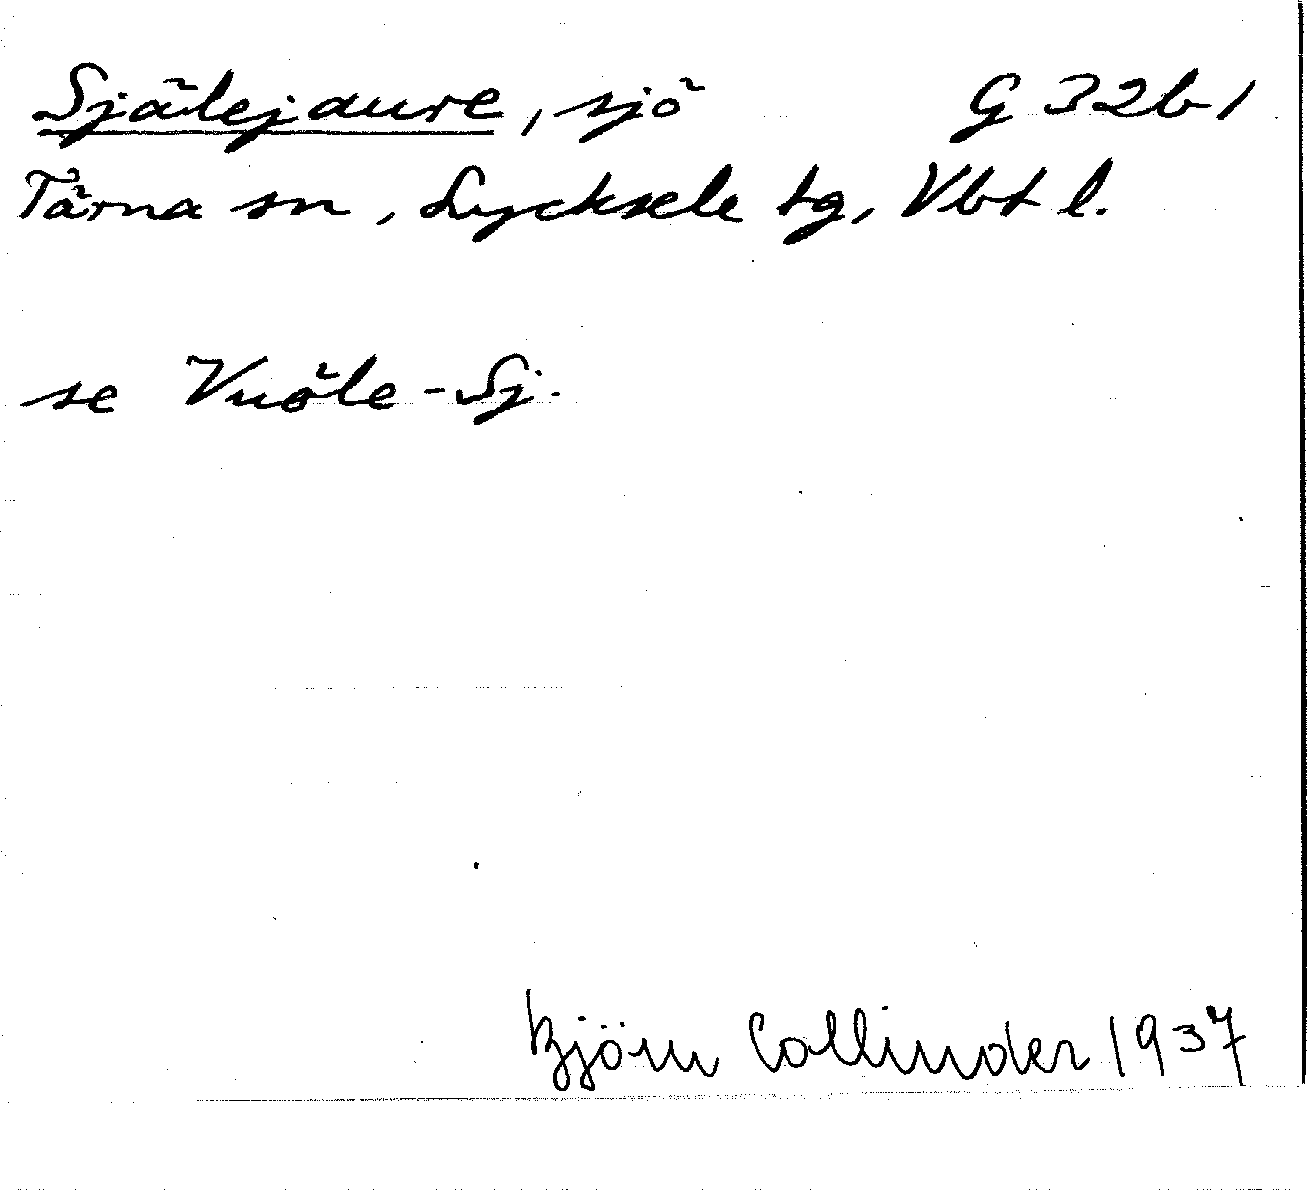 Själejaure, sjö G 32b1
Tärna sn, Lycksele tg, Vbt l.
se Vuöle-Sj.
Björn Collinder 1937